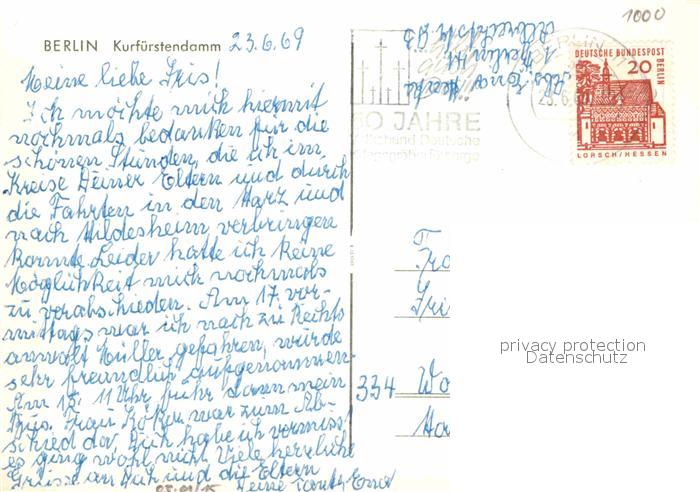 1000
BERLIN Kurfürstendamm 23.6.69
Meine liebe Iris!
Ich möchte mich hiermit
nochmals bedanken für die
schönen Stunden, die ich im
Kreise Deiner Eltern und durch
die Fahrten in den Harz und
nach Hildesheim verbringen
konnte. Leider hatte ich keine
Möglichkeit mich nochmals
zu verabschieden. Am 17. vor-
mittags war ich nach zu Rechts
anwalt Müller gefahren, wurde
sehr freundlich aufgenommen.
Am 15. 11 Uhr fuhr dann mein
Bus. Frau war zum Ab-
schied da. Dich habe ich vermisst
es ging wohl nicht. Viele herzliche
Grüsse an Dich und die Eltern
Deine Tante Erna
Abs. Erna
1 Berlin 41
50 JAHRE
Volksbund Deutsche
Kriegsgräberfürsorge
DEUTSCHE BUNDESPOST
BERLIN
20
LORSCH/HESSEN
334 Wo
privacy protection
Datenschutz